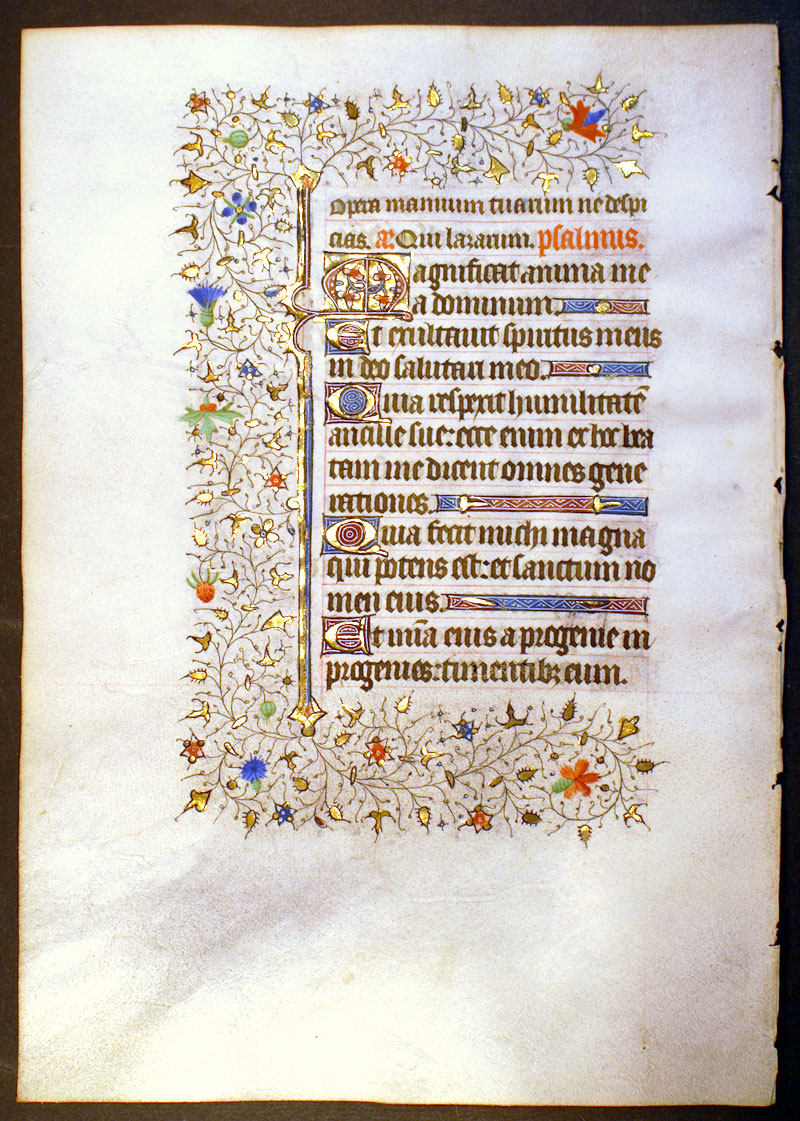 Opera manuum tuarum ne despi
cias. a: Qui lazarum. psalmus.
Magnificat anima me
a dominum.
Et exultauit spiritus meus
in deo salutari meo.
Quia respexit humilitatē
ancille sue: ecce enim ex hoc bea
tam me dicent omnes gene
rationes.
Quia fecit michi magna
qui potens est: et sanctum no
men eius.
Et mīa eius a progenie in
progenies: timentibꝫ eum.